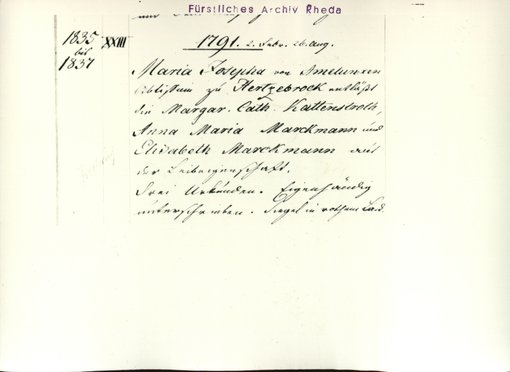 Fürstliches Archiv Rheda
1835
bis
1837
XXIII
1791. 2. Febr. 26. Aug.
Maria Josepha von Amelunxen
Abtissin zu Hertzebrock entläßt
die Margar. Cath. Kattenstroth,
Anna Maria Marckmann und
Elisabeth Marckmann aus
der Leibeigenschaft.
Drei Urkunden. Eigenhändig
unterschrieben. Siegel in rothem Lack.